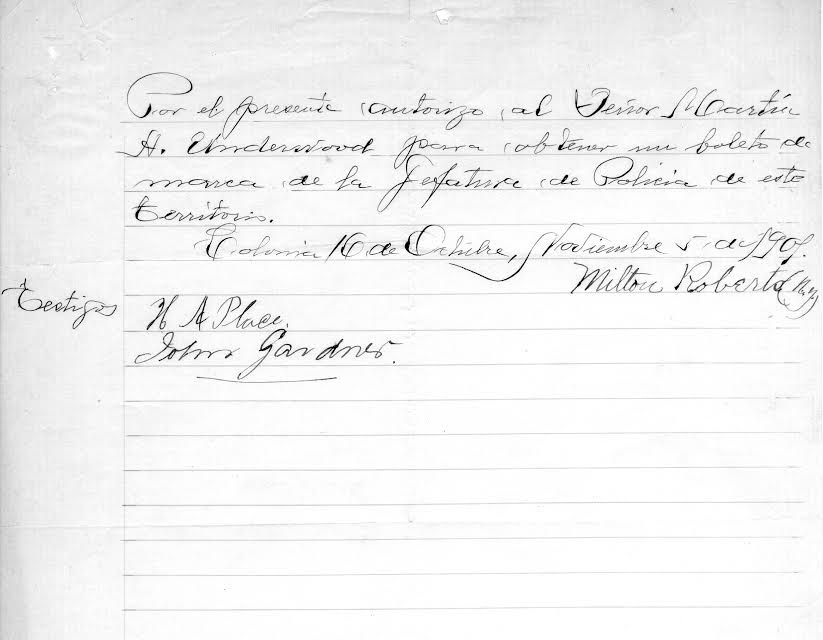 Por el presente autorizo al Señor Martin
H. Underwood para obtener un boleto de
marca de la Jefatura de Policia de este
territorio.
Colonia 16 de Octubre, Noviembre 5 de 190
Milton Roberts
Testigos
H A Place.
John Gardner.